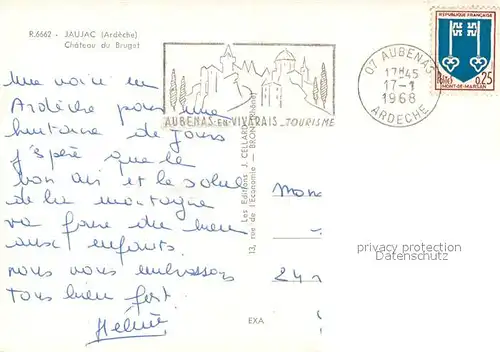 R.6662 - JAUJAC (Ardèche)
Château du Bruget
Une voici en
Ardèche pour une
huitaine de jours
J'spère que le
bon air et le soleil
de la montagne
va faire du bien
aux enfants.
nous vous embrassons
tous bien fort.
Hélène
AUBENAS-EN-VIVARAIS_TOURISME
07 AUBENAS
17H45
17-1
1968
ARDECHE
REPUBLIQUE FRANÇAISE
0,25
MONT-DE-MARSAN
Les Editions J. CELLARD
13, rue de l'Economie — BRON (Rhône)
EXA
24
privacy protection
Datenschutz